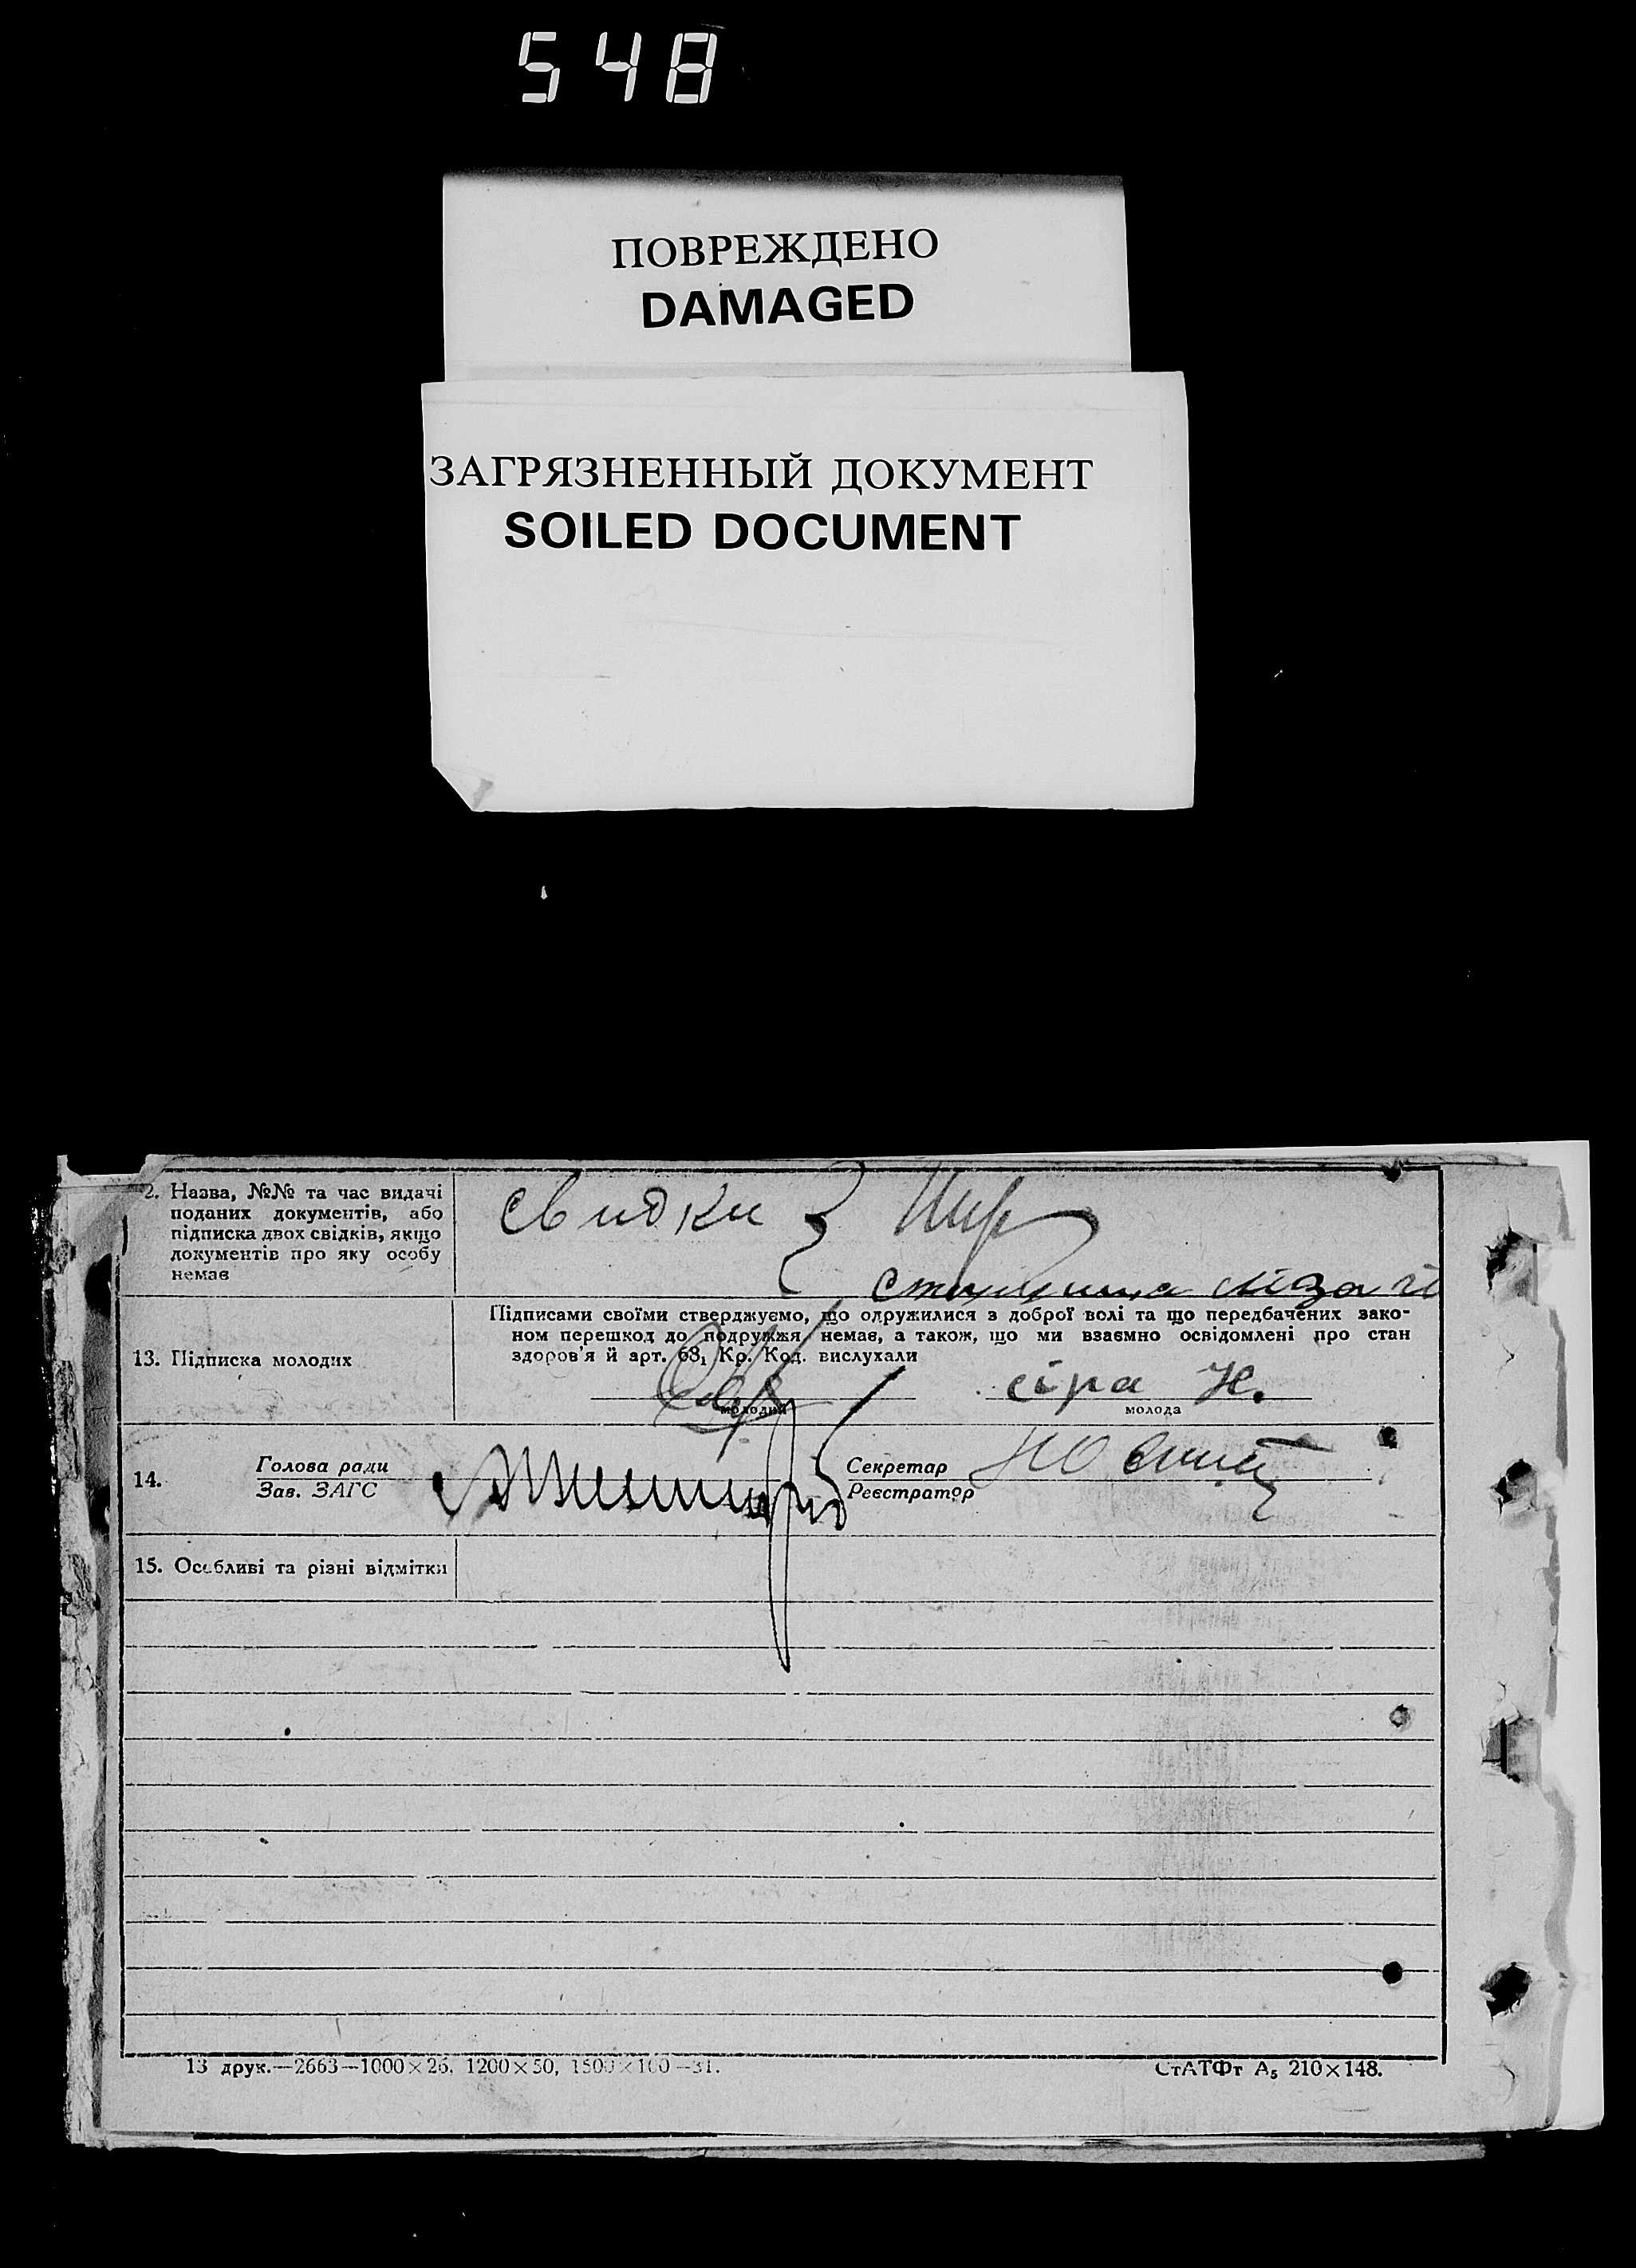 548
ПОВРЕЖДЕНО
DAMAGED
ЗАГРЯЗНЕННЫЙ ДОКУМЕНТ
SOILED DOCUMENT
2. Назва, №№ та час видачі
поданих документів, або
підписка двох свідків, якщо
документів про яку особу
немає
свидки
13. Підписка молодих
Підписами своїми стверджуємо, що одружилися з доброї волі та що передбачених зако-
ном перешкод до подружжя немає, а також, що ми взаємно освідомлені про стан
здоров'я й арт. 68₁ Кр. Код. вислухали
сіра Н.
молодий
молода
14.
Голова ради
Зав. ЗАГС
Секретар
Реєстратор
15. Особливі та різні відмітки
13 друк.—2663—1000×26, 1200×50, 1500×100—31.
СтАТФт А₅ 210×148.